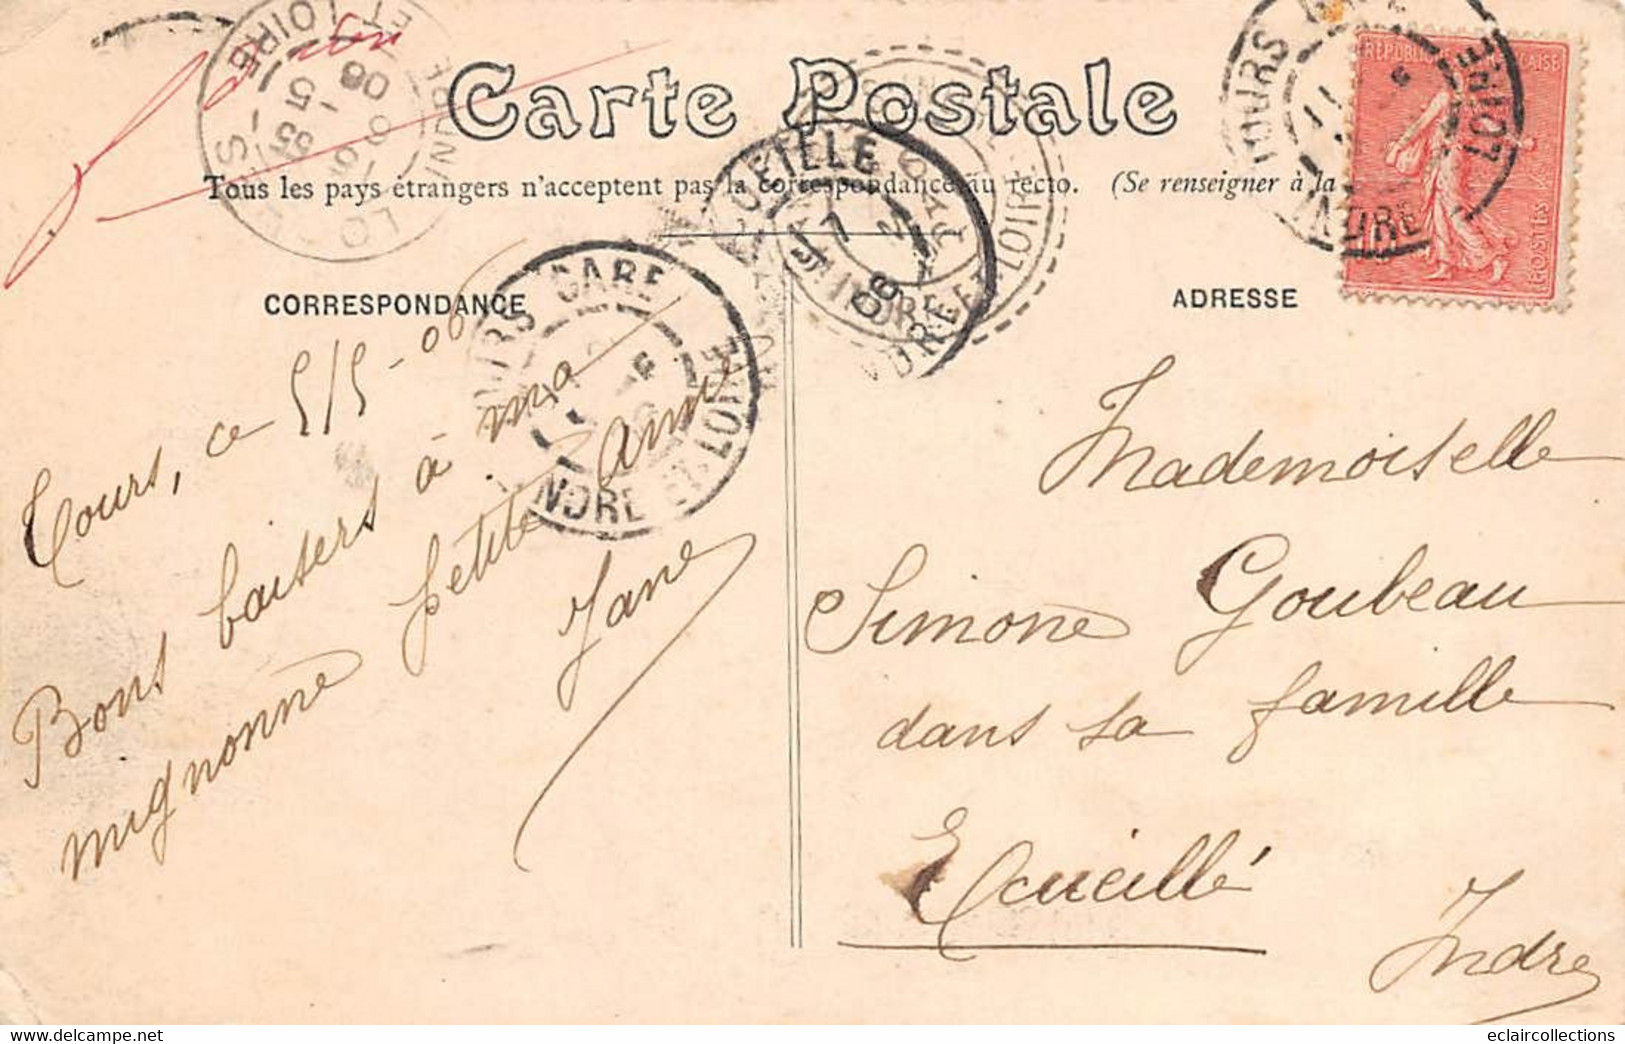 Carte Postale
Tous les pays étrangers n'acceptent pas la correspondance au recto. (Se renseigner à la
CORRESPONDANCE
ADRESSE
Tours, ce 5/5-06
Bons baisers à ma
mignonne petite amie
Jane
Mademoiselle
Simone Goubeau
dans sa famille
Ecueillé
Indre
RÉPUBLIQUE FRANÇAISE
POSTES
TOURS GARE
INDRE ET LOIRE
TOURS GARE
INDRE ET LOIRE
INDRE ET LOIRE
06
eclaircollections